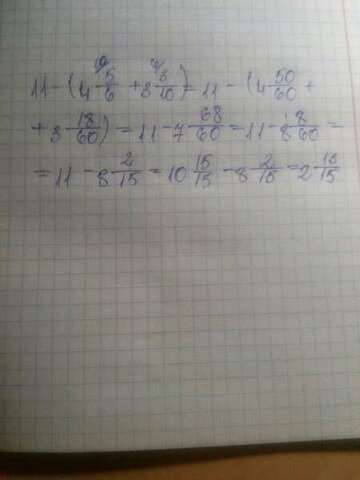 11 - (4 5/6 + 3 3/10) = 11 - (4 50/60 +
+ 3 18/60) = 11 - 7 68/60 = 11 - 8 8/60 =
= 11 - 8 2/15 = 10 15/15 - 8 2/15 = 2 13/15